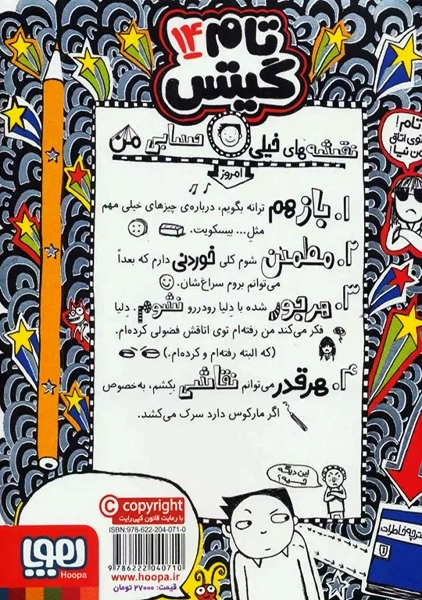 تام ۱۴
گیتس
نقشه‌های خیلی حسابی من
امروز
۱. باز هم ترانه بگویم، درباره‌ی چیزهای خیلی مهم
مثلِ... بیسکویت.
۲. مطمئن شوم کلی خوردنی دارم که بعداً
می‌توانم بروم سراغ‌شان.
۳. هر جور شده با دِلیا رودررو نشوم. دلیا
فکر می‌کند من رفته‌ام توی اتاقش فضولی کرده‌ام.
(که البته رفته‌ام و کرده‌ام.)
۴. هرقدر می‌توانم نقاشی بکِشم، به‌خصوص
اگر مارکوس دارد سرک می‌کشد.
تام!
توی اتاق
من نیا!
این دیگه
چیه؟
دفترچه خاطرات
© copyright
با رعایت قانون کپی‌رایت
ISBN:978-622-204-071-0
9 786222 040710
www.hoopa.ir
قیمت: ۲۷۰۰۰ تومان
هوپا
Hoopa